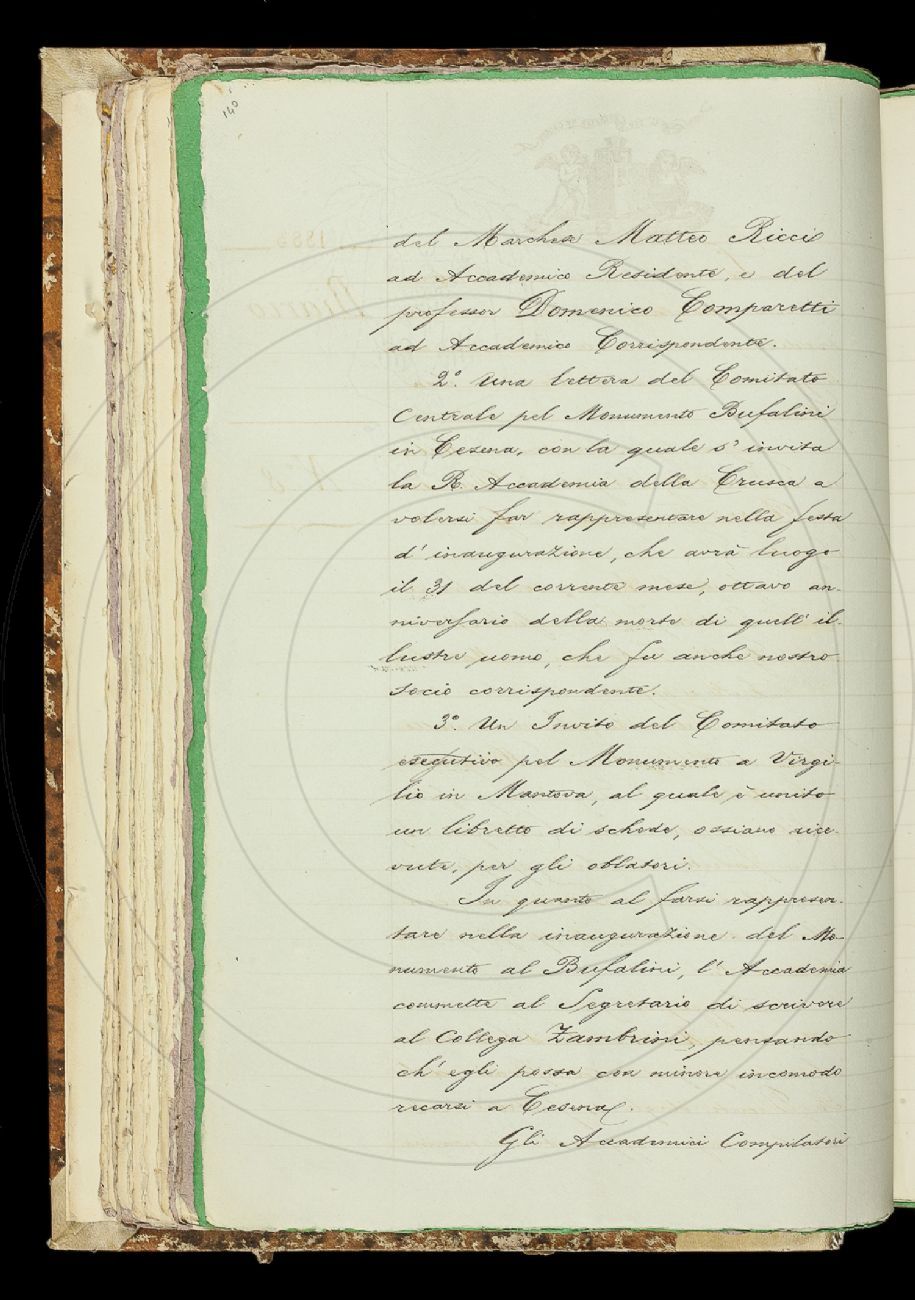 140
del Marchese Matteo Ricci
ad Accademico Residente, e del
professor Domenico Comparetti
ad Accademico Corrispondente.
2º. Una lettera del Comitato
Centrale pel Monumento Bufalini
in Cesena, con la quale s' invita
la R. Accademia della Crusca a
volersi far rappresentare nella festa
d' inaugurazione, che avrà luogo
il 31 del corrente mese, ottavo an-
niversario della morte di quell' il-
lustre uomo, che fu anche nostro
socio corrispondente.
3º. Un Invito del Comitato
esegutivo pel Monumento a Virgi-
lio in Mantova, al quale è unito
un libretto di schede, ossiano rice-
vute, per gli oblatori.
In quanto al farsi rappresen-
tare nella inaugurazione del Mo-
numento al Bufalini, l' Accademia
commette al Segretario di scrivere
al Collega Zambrini, pensando
ch' egli possa con minore incomodo
recarsi a Cesena.
Gli Accademici Compilatori